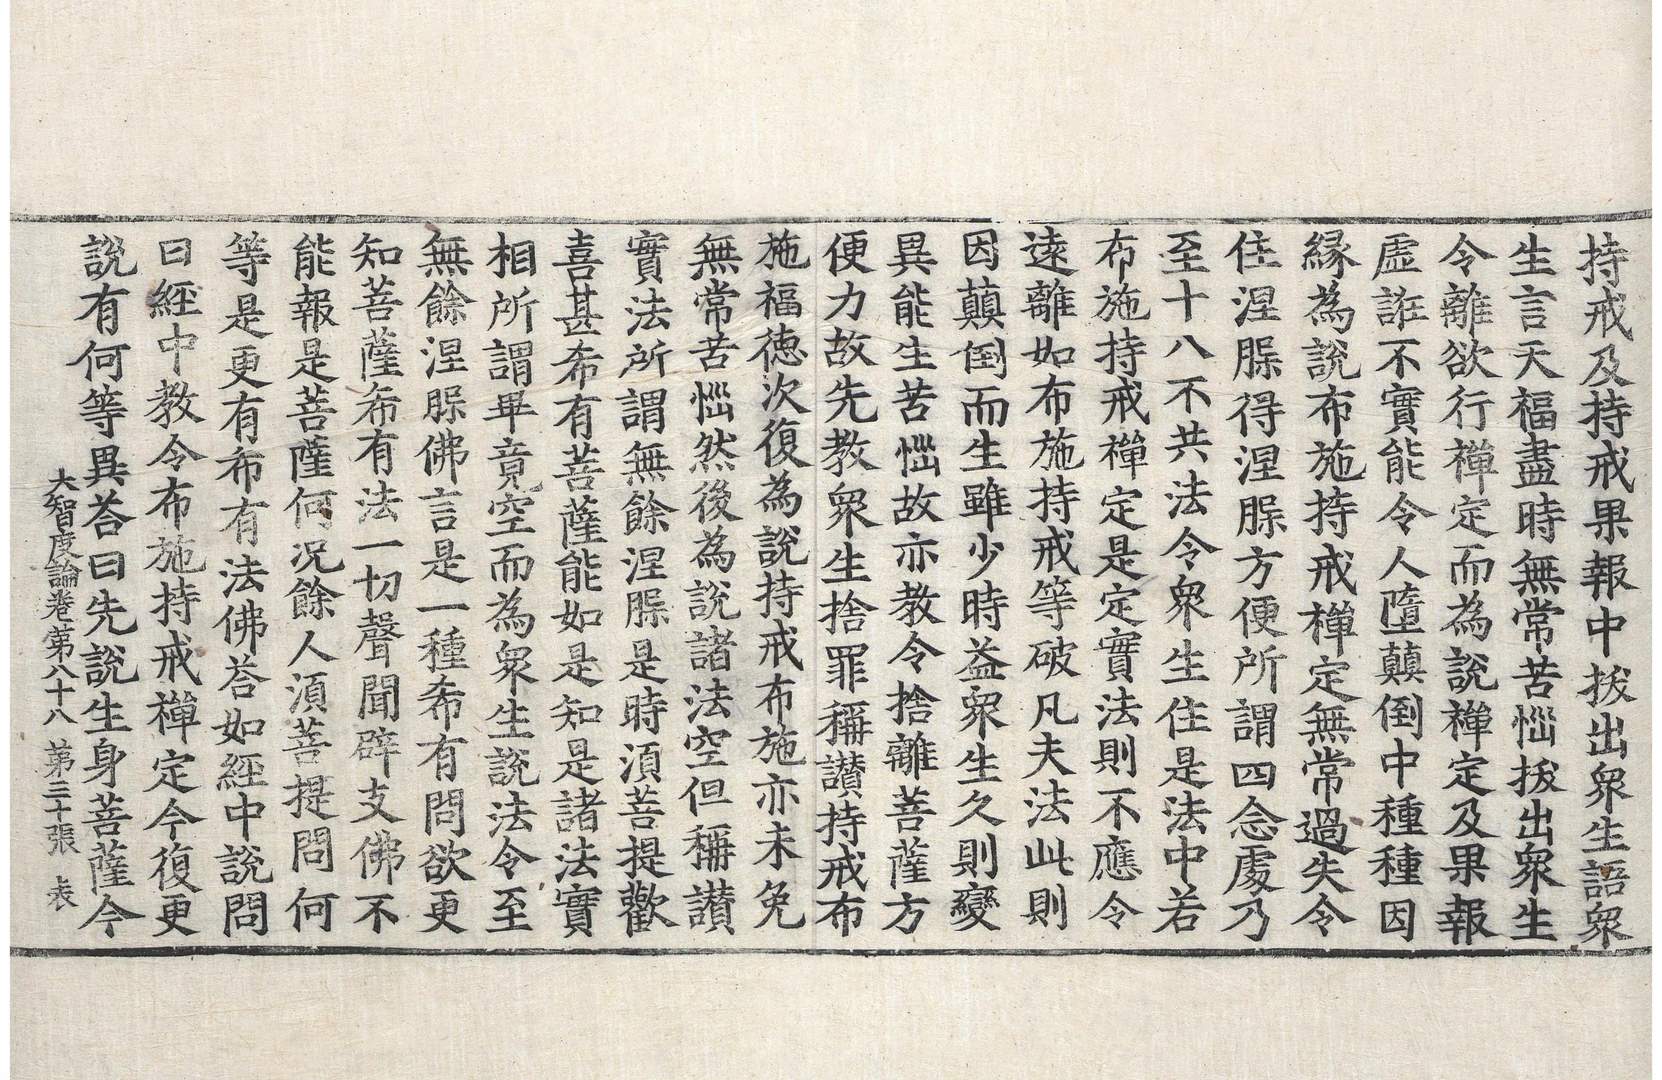 持戒及持戒果報中拔出衆生語衆
生言天福盡時無常苦惱拔出衆生
令離欲行禪定而為說禪定及果報
虛誑不實能令人墮顛倒中種種因
緣為說布施持戒禪定無常過失令
住涅槃得涅槃方便所謂四念處乃
至十八不共法令衆生住是法中若
布施持戒禪定是定實法則不應令
遠離如布施持戒等破凡夫法此則
因顛倒而生雖少時益衆生久則變
異能生苦惱故亦教令捨離菩薩方
便力故先教衆生捨罪稱讃持戒布
施福德次復為說持戒布施亦未免
無常苦惱然後為說諸法空但稱讃
實法所謂無餘涅槃是時湏菩提歡
喜甚希有菩薩能如是知是諸法實
相所謂畢竟空而為衆生說法令至
無餘涅槃佛言是一種希有問欲更
知菩薩布有法一切聲聞辟支佛不
能報是菩薩何況餘人湏菩提問何
等是更有布有法佛荅如經中說問
曰經中教令布施持戒禪定今復更
說有何等異荅曰先說生身菩薩今
大智度論卷第八十八 第三十張 表